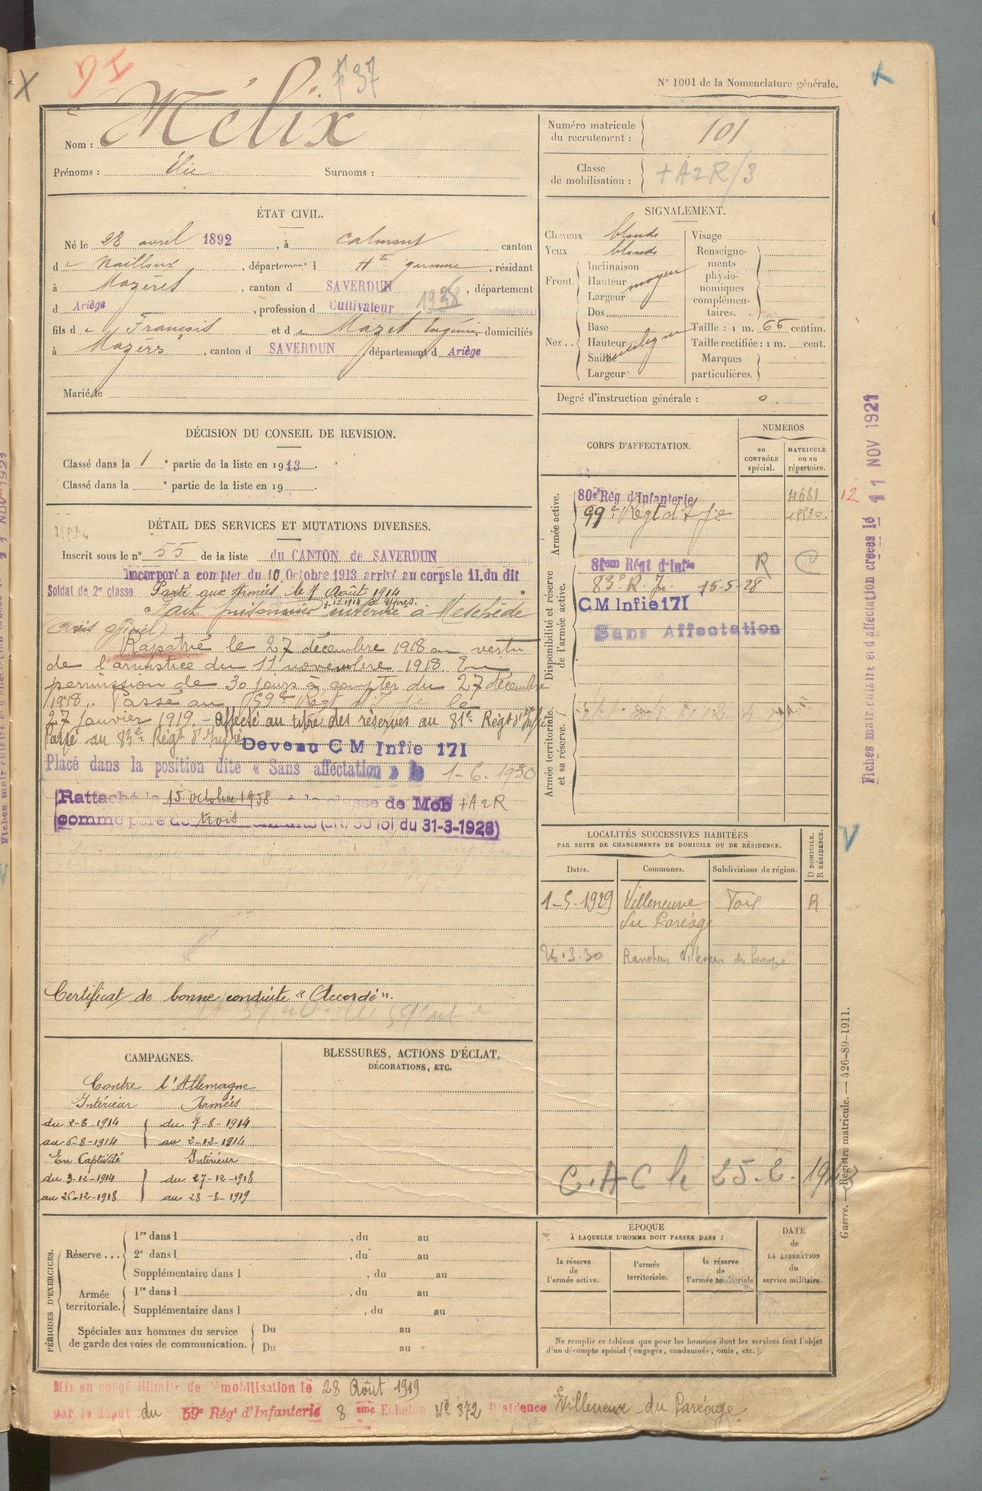 N° 1001 de la Nomenclature générale.
Nom : Mélix
Prénoms : Élie Surnoms :
Numéro matricule du recrutement : 101
Classe de mobilisation : + A 2 R/3
ÉTAT CIVIL.
Né le 28 avril 1892, à Calmont canton
d e Nailloux, département d Hte garonne, résidant
à Mazères, canton d SAVERDUN, département
d Ariège, profession d Cultivateur
fils d e François et d e Mazet Eugénie domiciliés
à Mazères, canton d SAVERDUN, département d Ariège
Marié le
SIGNALEMENT.
Cheveux blonds
Yeux blonds
Front. Inclinaison
Hauteur moyen
Largeur
Nez.. Dos
Base
Hauteur
Saillie
Largeur
Visage
Renseignements physionomiques complémentaires.
Taille : 1 m. 66 centim.
Taille rectifiée : 1 m. cent.
Marques particulières.
Degré d'instruction générale : 0
DÉCISION DU CONSEIL DE REVISION.
Classé dans la 1 e partie de la liste en 1913.
Classé dans la e partie de la liste en 19
DÉTAIL DES SERVICES ET MUTATIONS DIVERSES.
Inscrit sous le n° 55 de la liste du CANTON de SAVERDUN
Incorporé a compter du 10 Octobre 1913 arrivé au corps le 11 du dit
Soldat de 2e classe Parti aux Armées le 7 Août 1914
Fait prisonnier interné à Meschède
(avis officiel)
Rapatrié le 27 décembre 1918 en vertu
de l'armistice du 11 novembre 1918. En
permission de 30 jours à compter du 27 décembre
1918. Passé au 59e Régt d'Ie le
27 janvier 1919. - Affecté au titre des réserves au 81e Régt d'Infie
Passé au 83e Régt d'Infrie Devenu C M Infie 171
Placé dans la position dite « Sans affectation » le 1-6-1930
Rattaché le 15 octobre 1938 à la classe de Mob + A 2 R
comme père de trois enfants (art. 58 loi du 31-3-1928)
Certificat de bonne conduite "Accordé".
CORPS D'AFFECTATION.
NUMÉROS
au CONTRÔLE spécial.
MATRICULE ou au répertoire.
Armée active.
80e Rég d'Infanterie 4681
Disponibilité et réserve de l'armée active.
81em Régt d'Infie R C
83e R. Ie 15-5-28
C M Infie 171
Sans Affectation
Armée territoriale et sa réserve.
LOCALITÉS SUCCESSIVES HABITÉES
PAR SUITE DE CHANGEMENTS DE DOMICILE OU DE RÉSIDENCE.
Dates. Communes. Subdivisions de région. D DOMICILE. R RÉSIDENCE.
1-5-1929 Villeneuve du Paréage Foix R
26.3.30
C.A.C le 25.2.
CAMPAGNES.
Contre l'Allemagne
Intérieur Armées
du 2-8-1914 du 7-8-1914
au 6-8-1914 au 2-12-1914
En Captivité Intérieur
du 3-12-1914 du 27-12-1918
au 26-12-1918 au 28-8-1919
BLESSURES, ACTIONS D'ÉCLAT,
DÉCORATIONS, ETC.
PÉRIODES D'EXERCICES.
Réserve ... 1re dans l , du au
2e dans l , du au
Supplémentaire dans l , du au
Armée territoriale. 1re dans l , du au
Supplémentaire dans l , du au
Spéciales aux hommes du service de garde des voies de communication. Du au
Du au
ÉPOQUE
À LAQUELLE L'HOMME DOIT PASSER DANS :
la réserve de l'armée active.
l'armée territoriale.
la réserve de l'armée territoriale
DATE de LA LIBÉRATION du service militaire.
Ne remplir ce tableau que pour les hommes dont les services font l'objet
d'un décompte spécial (engagés, condamnés, omis, etc.).
Mis en congé illimité de démobilisation le 28 Août 1919
par le dépôt du 59e Rég' d'Infanterie 8 ème Echelon N° 372 Résidence Villeneuve du Paréage
Guerre. — Registre matricule. — 426-89-1911.
Fiches matriculaire et d'affectation créées le 11 NOV 1921